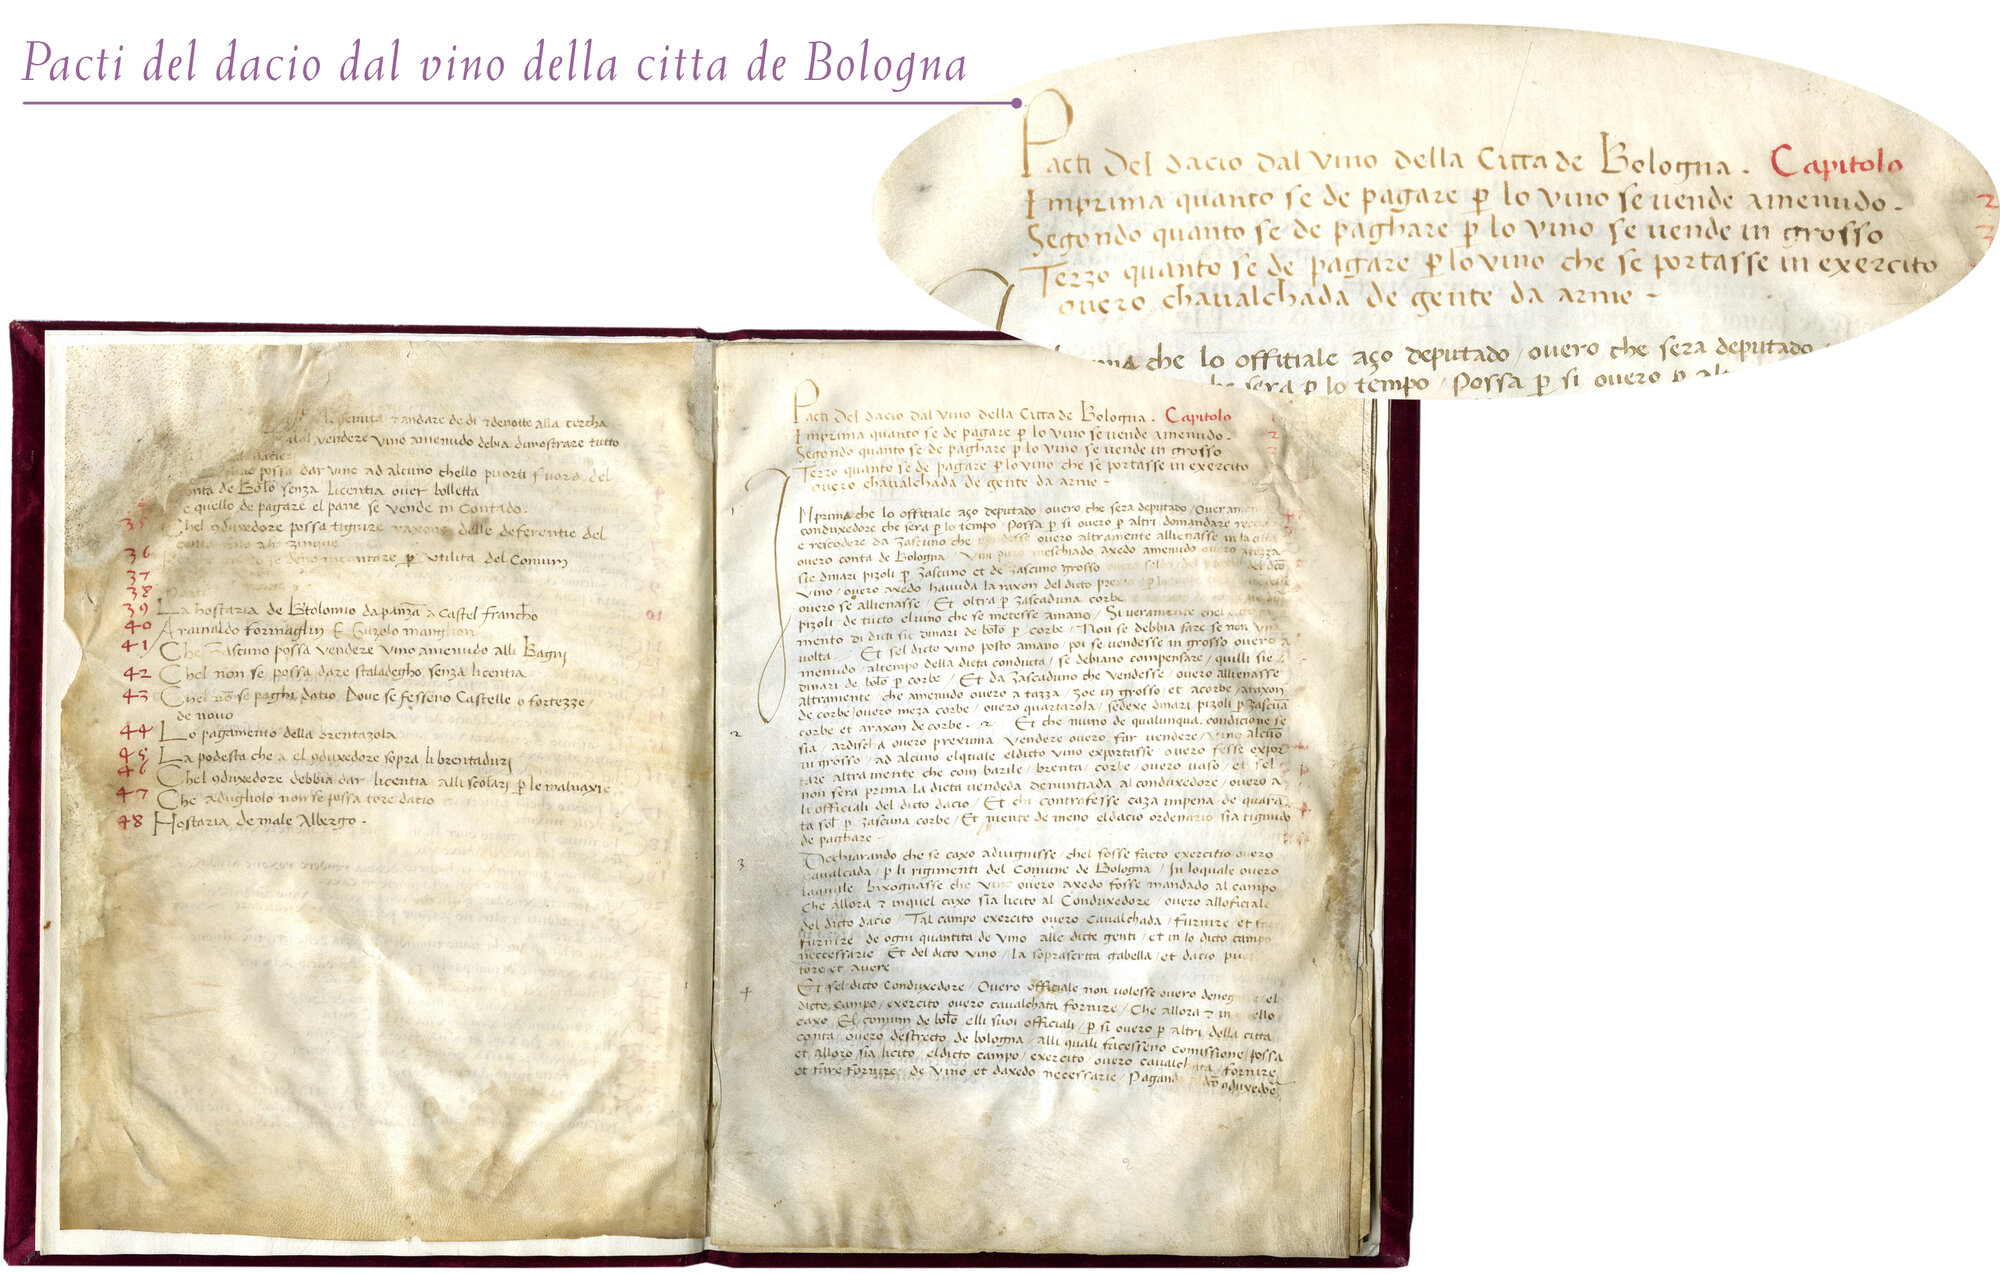 Pacti del dacio dal vino della citta de Bologna
Pacti del dacio dal vino della Citta de Bologna . Capitolo
Imprima quanto se de pagare p lo vino se uende amenudo . 2
Segondo quanto se de paghare p lo vino se uende in grosso 3
Terzo quanto se de pagare p lo vino che se portasse in exercito
ouero chaualchada de gente da arme -
che lo offitiale azo deputado / ouero che sera deputado
sera p lo tempo / Possa p si ouero p
andare de di denotte alla cercha
vendere vino amenudo debia dimostrare tutto
possa dar vino ad alcuno chello puorti fuora del
de Bolo senza licentia ouer bolletta
quello de pagare el pane se vende in Contado .
35 Chel 9duxedore possa tignire raxone delle deferentie del
36 incantare p utilita del Comun
37
38
39 La hostaria de Btolomio da panza a Castel francho
40 Arainaldo formaglin E Guzolo mangion
41 Che zascuno possa vendere vino amenudo alli Bagni
42 Chel non se possa dare staladegho senza licentia
43 Chel no se paghi datio Doue se fesseno Castelle o fortezze /
de nouo
44 Lo pagamento della brentazola
45 La podesta che a el 9duxedore sopra li brentaduri
46 Chel 9duxedore debbia dar licentia alli scolari p le maluaxie
47 Che adugliolo non se possa tore dacio
48 Hostaria de male Albergo .
Pacti del dacio dal vino della Citta de Bologna . Capitolo
Imprima quanto se de pagare p lo vino se uende amenudo . 2
Segondo quanto se de paghare p lo vino se uende in grosso 3
Terzo quanto se de pagare p lo vino che se portasse in exercito
ouero chaualchada de gente da arme -
1 INprima che lo offitiale azo deputado / ouero che sera deputado /
conduxedore che sera p lo tempo / Possa p si ouero p altri domandare
e rescodere da zascuno che vendesse ouero altramente allienasse in la citta
ouero conta de Bologna / Vin puro meschiado axedo amenudo ouero a tazza
sie dinari pizoli p zascuno et de zascuno grosso ouero soldo
vino / ouero axedo hauuda la raxon del dicto prexio
ouero se allienasse / Et oltra p zascaduna corbe
pizoli / de tucto el uino che se metesse amano / Si veramente chel
mento di dicti sie dinari de bolo p corbe / Non se debbia fare se non una
volta . Et sel dicto vino posto amano / poi se vendesse in grosso ouero a
menudo / al tempo della dicta conducta / se debiano compensare / quilli sie
dinari de bolo p corbe / Et da zascaduno che vendesse / ouero allienasse
altramente / che amenudo ouero a tazza / zoe in grosso / et acorbe / araxon
de corbe / ouero meza corbe / ouero quartarola / sedexe dinari pizoli p zascuna
2 corbe et araxon de corbe . 2 Et che niuno de qualunqua condicione se
sia / ardischa ouero prexuma vendere ouero far vendere / vino alcuno
in grosso / ad alcuno elquale eldicto vino exportasse / ouero fesse expor
tare altramente che com barile / brenta / corbe / ouero vaso / et sel
non sera prima la dicta vendeda denuntiada al conduxedore / ouero a
li officiali del dicto dacio / Et chi contrafesse caza in pena de quara
ta sol p zascuna corbe / Et niente de meno eldacio ordenario sia tignudo
de paghare .
3 Dechiarando che se caxo aduignisse / chel fosse facto exercitio ouero
caualcada / p li rigimenti del Comune de Bologna / In loquale ouero
laquale bixognasse che vino ouero axedo fosse mandado al campo
Che allora inquel caxo sia licito al Conduxedore / ouero allofficiale
del dicto dacio / Tal campo exercito ouero Caualchada / furnire et
furnire / de ogni quantita de vino alle dicte genti / et in lo dicto campo
neccessarie / Et del dicto vino / la soprascritta gabella / et dacio
tore et auere
4 Et sel dicto Conduxedore / Ouero offitiale non volesse ouero / el
dicto campo / exercito ouero caualchata fornire / Che allora in quello
caxo El comun de bolo elli suoi officiali / p si ouero p altri della citta
conta ouero destrecto de bologna / alli quali facesseno comissione / possa
et alloro sia licito / eldicto campo / exercito / ouero caualchata / fornire
et fare fornire / de vino et daxedo necessarie / Pagando 9duxedore
2